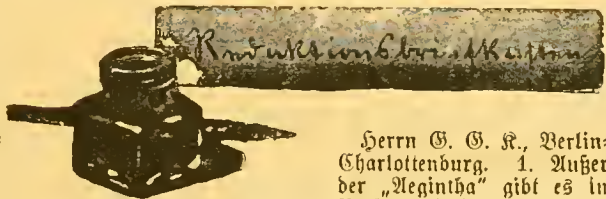 Redaktionsbriefkasten
Herrn G. G. K., Berlin-
Charlottenburg. 1. Außer
der „Aegintha“ gibt es in